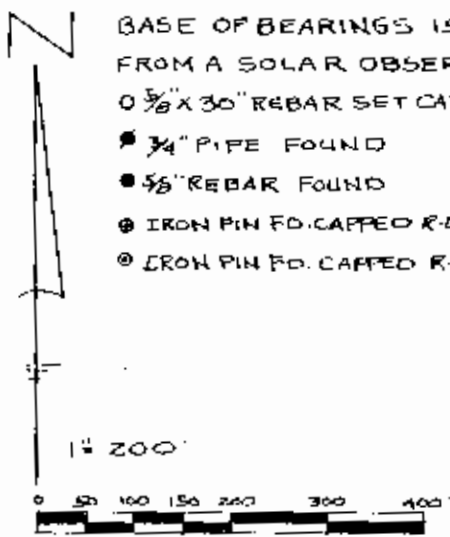 N
BASE OF BEARINGS IS
FROM A SOLAR OBSER
O 5/8" X 30" REBAR SET CA
● 3/4" PIPE FOUND
● 5/8" REBAR FOUND
⊕ IRON PIN FD. CAPPED R-
◎ IRON PIN FD. CAPPED R-
1" 200'
0 50 100 150 200 300 400